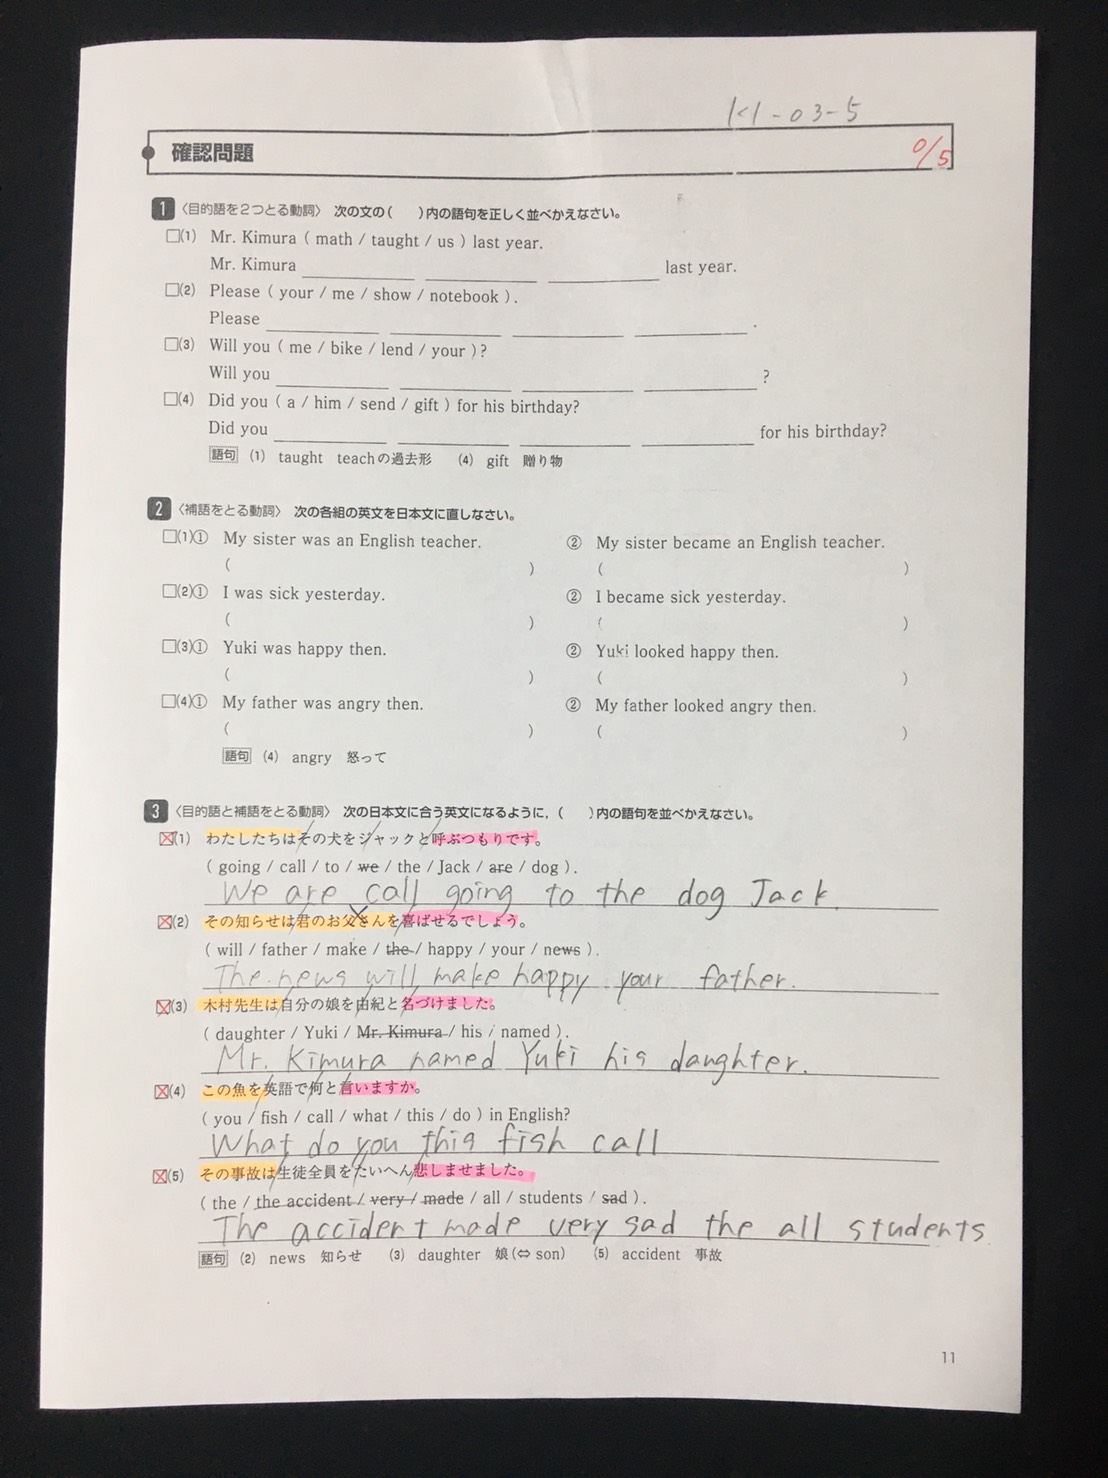 K1-03-5
確認問題
0/5
1 〈目的語を2つとる動詞〉 次の文の( )内の語句を正しく並べかえなさい。
□(1) Mr. Kimura ( math / taught / us ) last year.
Mr. Kimura ____ ____ ____ last year.
□(2) Please ( your / me / show / notebook ).
Please ____ ____ ____ ____ .
□(3) Will you ( me / bike / lend / your )?
Will you ____ ____ ____ ____ ?
□(4) Did you ( a / him / send / gift ) for his birthday?
Did you ____ ____ ____ ____ for his birthday?
語句 (1) taught teachの過去形 (4) gift 贈り物
2 〈補語をとる動詞〉 次の各組の英文を日本文に直しなさい。
□(1)① My sister was an English teacher. ② My sister became an English teacher.
( ) ( )
□(2)① I was sick yesterday. ② I became sick yesterday.
( ) ( )
□(3)① Yuki was happy then. ② Yuki looked happy then.
( ) ( )
□(4)① My father was angry then. ② My father looked angry then.
( ) ( )
語句 (4) angry 怒って
3 〈目的語と補語をとる動詞〉 次の日本文に合う英文になるように,( )内の語句を並べかえなさい。
□(1) わたしたちはその犬をジャックと呼ぶつもりです。
( going / call / to / we / the / Jack / are / dog ).
We are call going to the dog Jack.
□(2) その知らせは君のお父さんを喜ばせるでしょう。
( will / father / make / the / happy / your / news ).
The news will make happy your father.
□(3) 木村先生は自分の娘を由紀と名づけました。
( daughter / Yuki / Mr. Kimura / his / named ).
Mr. Kimura named Yuki his daughter.
□(4) この魚を英語で何と言いますか。
( you / fish / call / what / this / do ) in English?
What do you this fish call
□(5) その事故は生徒全員をたいへん悲しませました。
( the / the accident / very / made / all / students / sad ).
The accident made very sad the all students
語句 (2) news 知らせ (3) daughter 娘(⇔son) (5) accident 事故
11